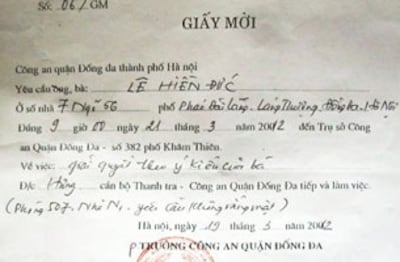 Số: 06/GM
GIẤY MỜI
Công an quận Đống đa thành phố Hà nội
Yêu cầu ông, bà: LÊ HIỀN ĐỨC
Ở số nhà 7 Ngõ 56 phố Pháo Đài Láng - Láng Thượng - Đống Đa - Hà Nội
Đúng 9 giờ 00 ngày 21 tháng 3 năm 2012 đến Trụ sở Công
an Quận Đống Đa - số 382 phố Khâm Thiên.
Về việc: giải quyết theo ý kiến của bà
Đ/c Hồng cán bộ Thanh tra - Công an Quận Đống Đa tiếp và làm việc.
(Phòng 507. Nhà N1 - yêu cầu không vắng mặt)
Hà nội, ngày 19 tháng 3 năm 2012
TRƯỞNG CÔNG AN QUẬN ĐỐNG ĐA